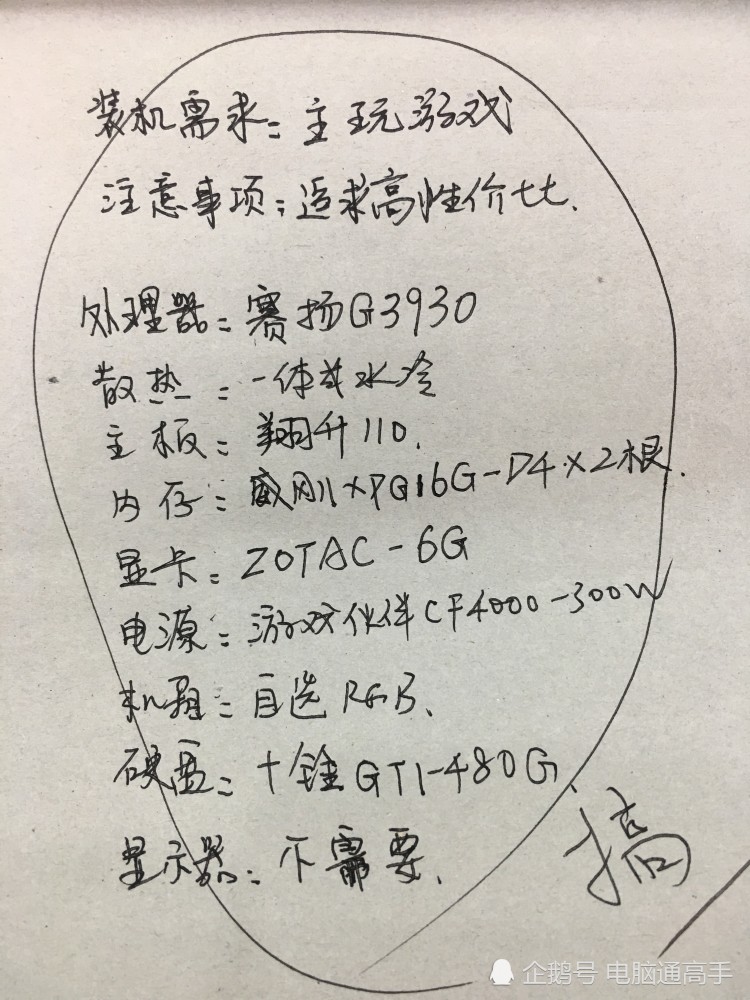 装机需求：主玩游戏
注意事项：追求高性价比.
处理器：赛扬G3930
散热：一体式水冷
主板：翔升110.
内存：威刚XPG16G-D4×2根.
显卡：ZOTAC-6G
电源：游戏伙伴CF4000-300W
机箱：自选RGB.
硬盘：十铨GT1-480G
显示器：不需要.
搞
企鹅号 电脑通高手